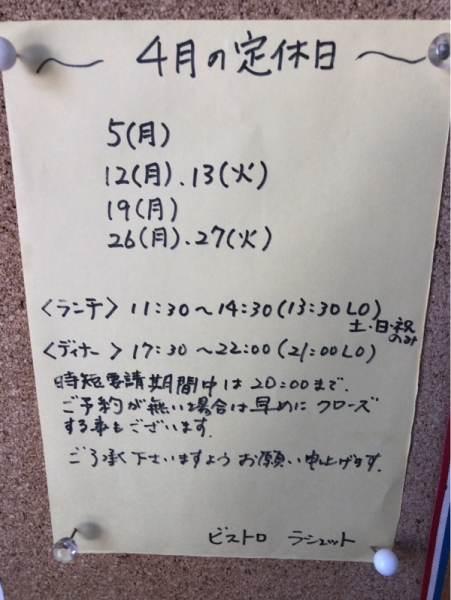 〜 4月の定休日 〜
5(月)
12(月).13(火)
19(月)
26(月).27(火)
〈ランチ〉11:30〜14:30(13:30LO)
土・日・祝
のみ
〈ディナー〉17:30〜22:00(21:00LO)
時短要請期間中は20:00まで.
ご予約が無い場合は早めにクローズ
する事もございます.
ご了承下さいますようお願い申上げます.
ビストロ ラシュット